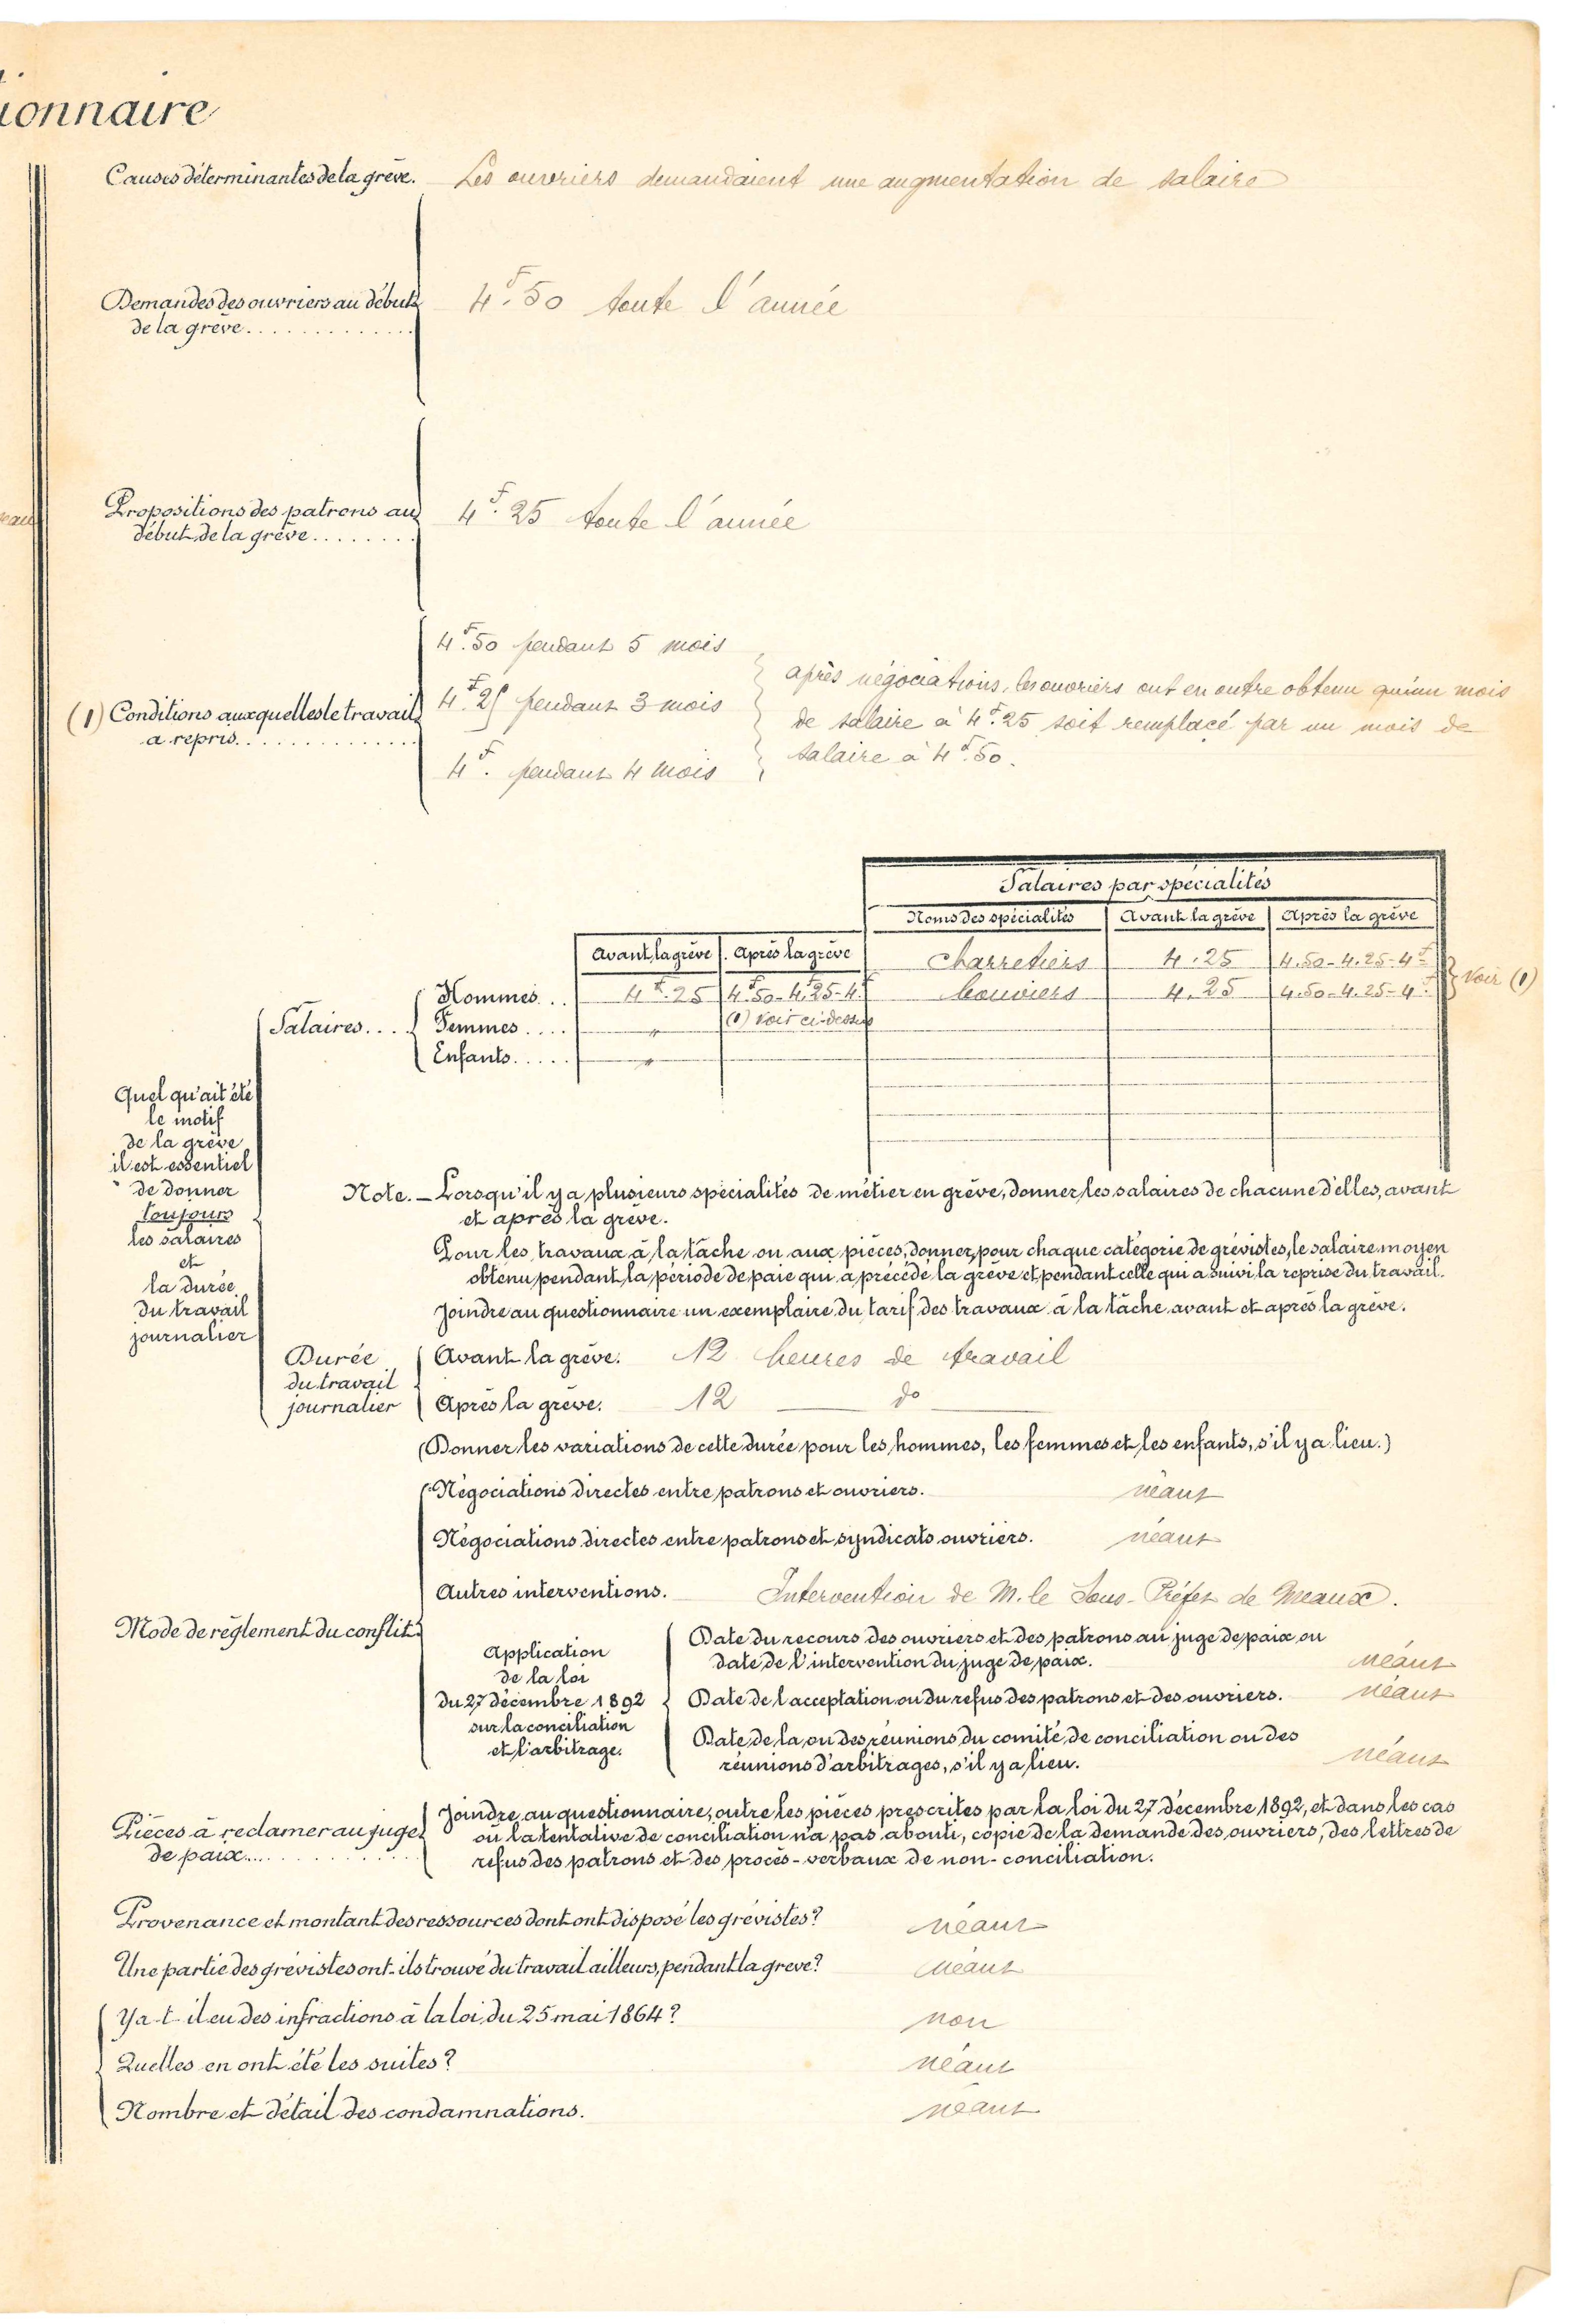 ionnaire
Causes déterminantes de la grève. Les ouvriers demandaient une augmentation de salaire
Demandes des ouvriers au début 4f.50 toute l'année
de la grève
Propositions des patrons au 4f.25 toute l'année
début de la grève
4f.50 pendant 5 mois
4f.25 pendant 3 mois
4f. pendant 4 mois
(1) Conditions auxquelles le travail
a repris
après négociations, les ouvriers ont en outre obtenu qu'un mois
de salaire à 4f.25 soit remplacé par un mois de
salaire à 4f.50.
Salaires par spécialités
Noms des spécialités Avant la grève Après la grève
Charretiers 4.25 4.50-4.25-4f
bouviers 4.25 4.50-4.25-4f. voir (1)
Avant la grève Après la grève
Salaires.... Hommes... 4f.25 4f.50-4f.25-4f
Femmes.... " (1) voir ci-dessus
Enfants..... "
Quel qu'ait été
le motif
de la grève
il est essentiel
de donner
toujours
les salaires
et
la durée
du travail
journalier
Note. — Lorsqu'il y a plusieurs spécialités de métier en grève, donner les salaires de chacune d'elles, avant
et après la grève.
Pour les travaux à la tâche ou aux pièces, donner, pour chaque catégorie de grévistes, le salaire moyen
obtenu pendant la période de paie qui a précédé la grève et pendant celle qui a suivi la reprise du travail.
Joindre au questionnaire un exemplaire du tarif des travaux à la tâche avant et après la grève.
Durée
du travail
journalier
Avant la grève. 12 heures de travail
Après la grève. 12 — do —
(Donner les variations de cette durée pour les hommes, les femmes et les enfants, s'il y a lieu.)
Mode de règlement du conflit
Négociations directes entre patrons et ouvriers. néant
Négociations directes entre patrons et syndicats ouvriers. néant
Autres interventions. Intervention de M. le Sous-Préfet de Meaux.
Application
de la loi
du 27 décembre 1892
sur la conciliation
et l'arbitrage.
Date du recours des ouvriers et des patrons au juge de paix ou
date de l'intervention du juge de paix. néant
Date de l'acceptation ou du refus des patrons et des ouvriers. néant
Date de la ou des réunions du comité de conciliation ou des
réunions d'arbitrages, s'il y a lieu. néant
Pièces à réclamer au juge
de paix....
Joindre au questionnaire, outre les pièces prescrites par la loi du 27 décembre 1892, et dans les cas
où la tentative de conciliation n'a pas abouti, copie de la demande des ouvriers, des lettres de
refus des patrons et des procès-verbaux de non-conciliation.
Provenance et montant des ressources dont ont disposé les grévistes? néant
Une partie des grévistes ont-ils trouvé du travail ailleurs, pendant la grève? néant
Y a-t-il eu des infractions à la loi du 25 mai 1864? non
Quelles en ont été les suites? néant
Nombre et détail des condamnations. néant